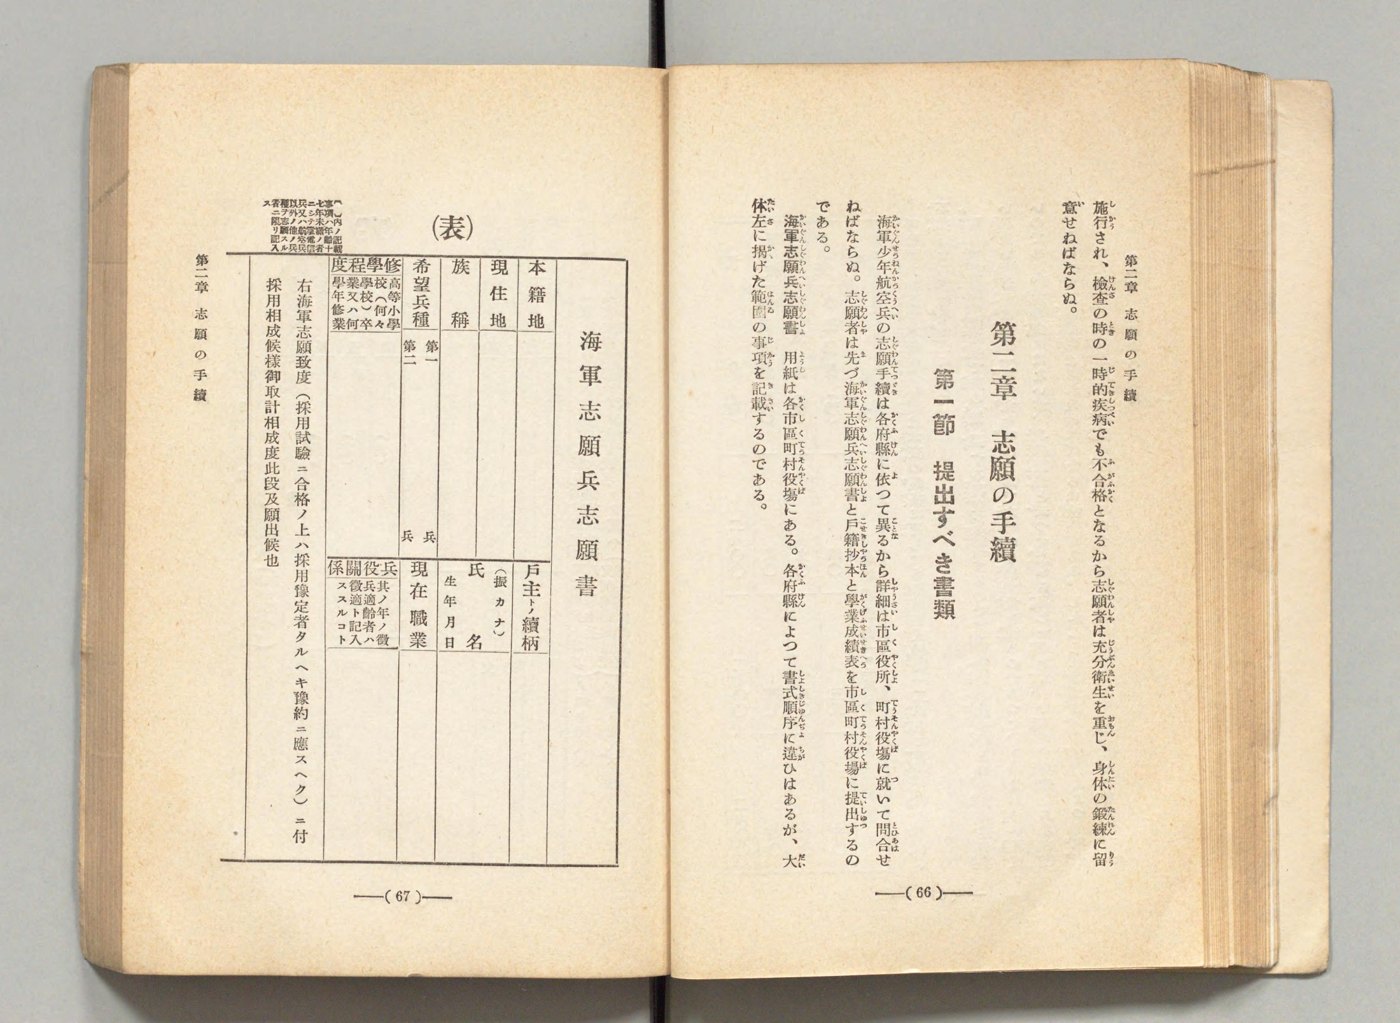 第二章 志願の手續
施行され、檢査の時の一時的疾病でも不合格となるから志願者は充分衞生を重じ、身体の鍛練に留
意せねばならぬ。
第二章 志願の手續
第一節 提出すべき書類
海軍少年航空兵の志願手續は各府縣に依つて異るから詳細は市區役所、町村役塲に就いて問合せ
ねばならぬ。志願者は先づ海軍志願兵志願書と戸籍抄本と學業成績表を市區町村役塲に提出するの
である。
海軍志願兵志願書 用紙は各市區町村役塲にある。各府縣によつて書式順序に違ひはあるが、大
体左に揭げた範圍の事項を記載するのである。
(66)
(表)
海軍志願兵志願書
本籍地
戸主トノ續柄
現住地
族稱
(振カナ)
氏名
生年月日
希望兵種
第一 兵
第二 兵
現在職業
修學程度
高等小學
校(何々
學校)卒
業又ハ何
學年修業
兵役關係
其ノ年ノ徵
兵適齡者ハ
徵適ト記入
ススルコト
右海軍志願致度(採用試驗ニ合格ノ上ハ採用豫定者タルヘキ豫約ニ應スヘク)ニ付
採用相成候樣御取計相成度此段及願出候也
(　)內ノ記載
事項ハ年齡十
七年未滿ノ者
ニシテ電信
兵又ハ航空兵
以外ノ他ノ兵
種ヲ志願スル
者ニ限リ記入
ス
第二章 志願の手續
(67)